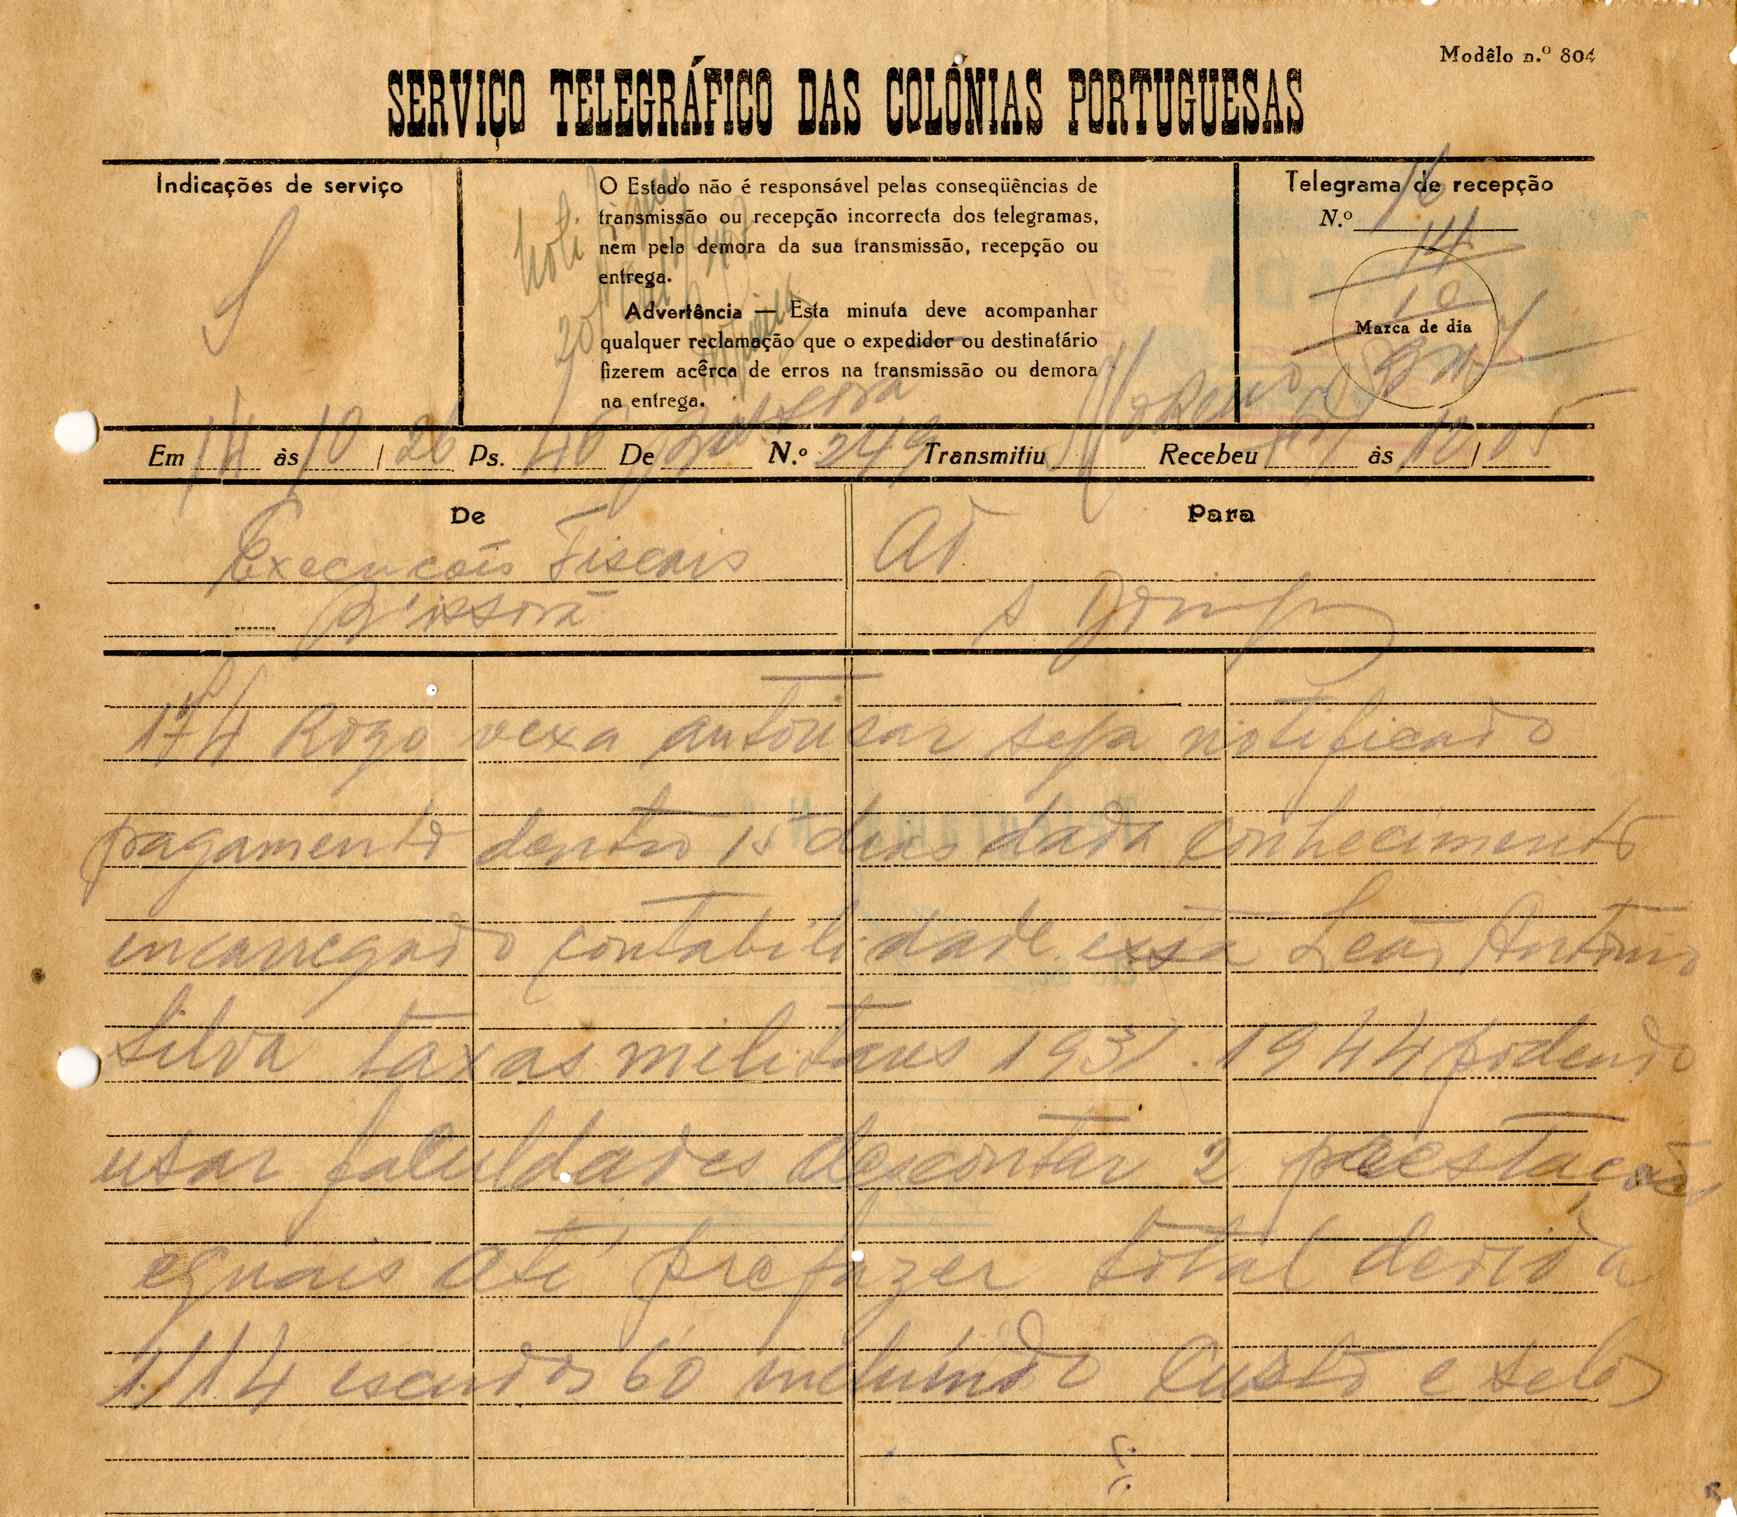 Modêlo n.º 804
SERVIÇO TELEGRÁFICO DAS COLÓNIAS PORTUGUESAS
Indicações de serviço
S
O Estado não é responsável pelas conseqüências de
transmissão ou recepção incorrecta dos telegramas,
nem pela demora da sua transmissão, recepção ou
entrega.
Advertência — Esta minuta deve acompanhar
qualquer reclamação que o expedidor ou destinatário
fizerem acêrca de erros na transmissão ou demora
na entrega.
Telegrama de recepção
N.º 16
14
10
Marca de dia
Em 14 às 10 / 26 Ps. 46 De N.º 249 Transmitiu Recebeu às 10 / 05
De
Para
Execuções Fiscais
Ad
Bissorã
S Domingos
174 Rogo vexa autorisar seja notificado
pagamento dentro 15 dias dada conhecimento
encarregado contabilidade essa Leão Antonio
Silva taxas militares 1931.1944 podendo
usar faculdades descontar 2 prestações
eguais até prefazer total devida
1.114 escudos 60 incluindo custo e selos